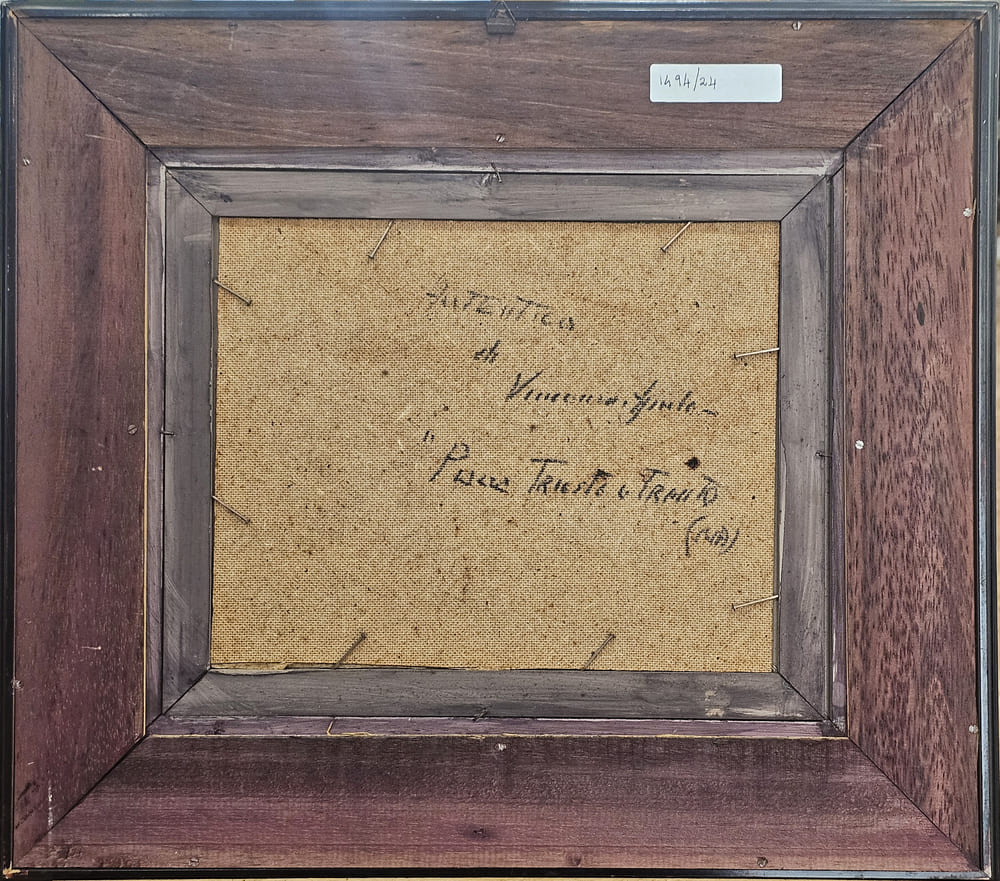 1494/24
AUTENTICO
di
"Piazza TRIESTE e TRENTO
(NA)